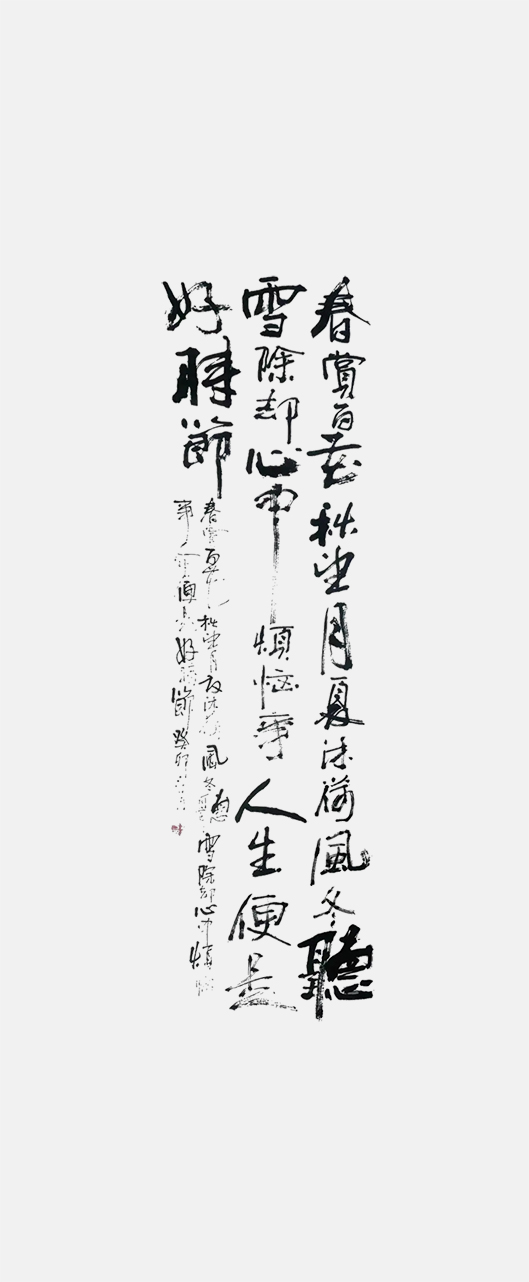 春賞百花秋望月夏沐荷風冬聽
雪除却心中煩惱事人生便是
好時節
春賞百花秋望月夏沐荷風冬聽雪除却心中煩惱
事人生便是好時節癸卯